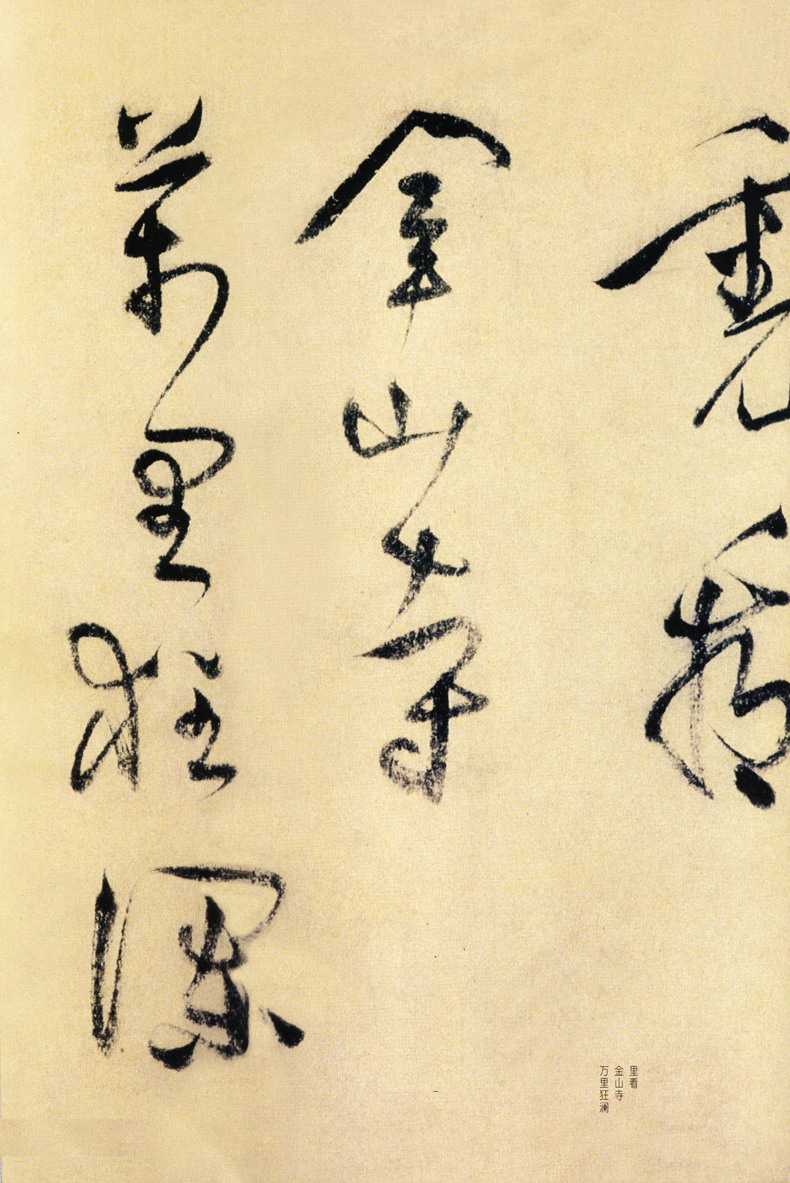 裏看
金山寺
萬里狂瀾
里看
金山寺
万里狂澜